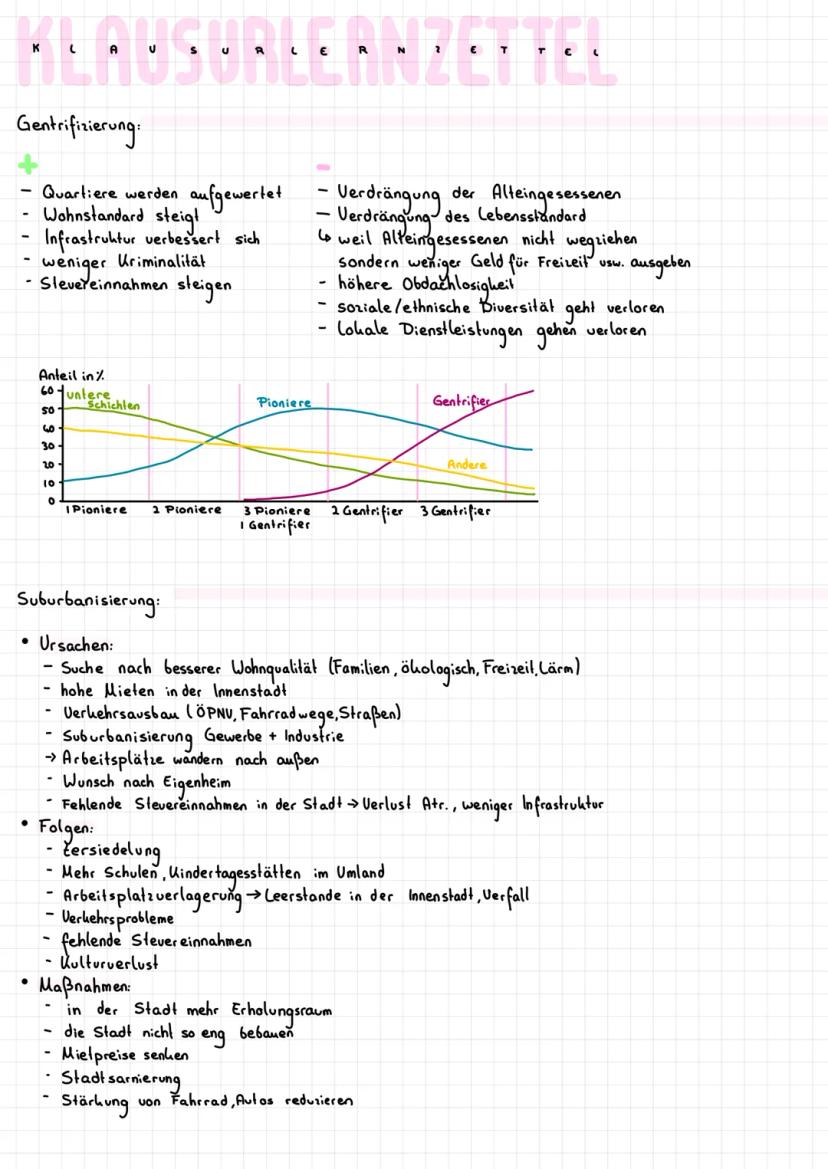 KLAUSURLERNZETTEL
Gentrifizierung:
+
- Quartiere werden aufgewertet
- Wohnstandard steigt
- Infrastruktur verbessert sich
- weniger Kriminalität
- Steuereinnahmen steigen
-
- Verdrängung der Alteingesessenen
- Verdrängung des Lebensstandard
↳ weil Alteingesessenen nicht wegziehen
sondern weniger Geld für Freizeit usw. ausgeben
- höhere Obdachlosigkeit
- soziale/ethnische Diversität geht verloren
- Lokale Dienstleistungen gehen verloren
Anteil in %
60
50
40
30
20
10
0
untere
Schichten
Pioniere
Gentrifier
Andere
1 Pioniere
2 Pioniere
3 Pioniere
1 Gentrifier
2 Gentrifier
3 Gentrifier
Suburbanisierung:
• Ursachen:
- Suche nach besserer Wohnqualität (Familien, ökologisch, Freizeit, Lärm)
- hohe Mieten in der Innenstadt
- Verkehrsausbau (ÖPNV, Fahrradwege, Straßen)
- Suburbanisierung Gewerbe + Industrie
→ Arbeitsplätze wandern nach außen
- Wunsch nach Eigenheim
- Fehlende Steuereinnahmen in der Stadt → Verlust Atr., weniger Infrastruktur
• Folgen:
- Zersiedelung
- Mehr Schulen, Kindertagesstätten im Umland
- Arbeitsplatzverlagerung → Leerstande in der Innenstadt, Verfall
- Verkehrsprobleme
- fehlende Steuereinnahmen
- Kulturverlust
• Maßnahmen:
- in der Stadt mehr Erholungsraum
- die Stadt nicht so eng bebauen
- Mietpreise senken
- Stadtsarnierung
- Stärkung von Fahrrad, Autos reduzieren